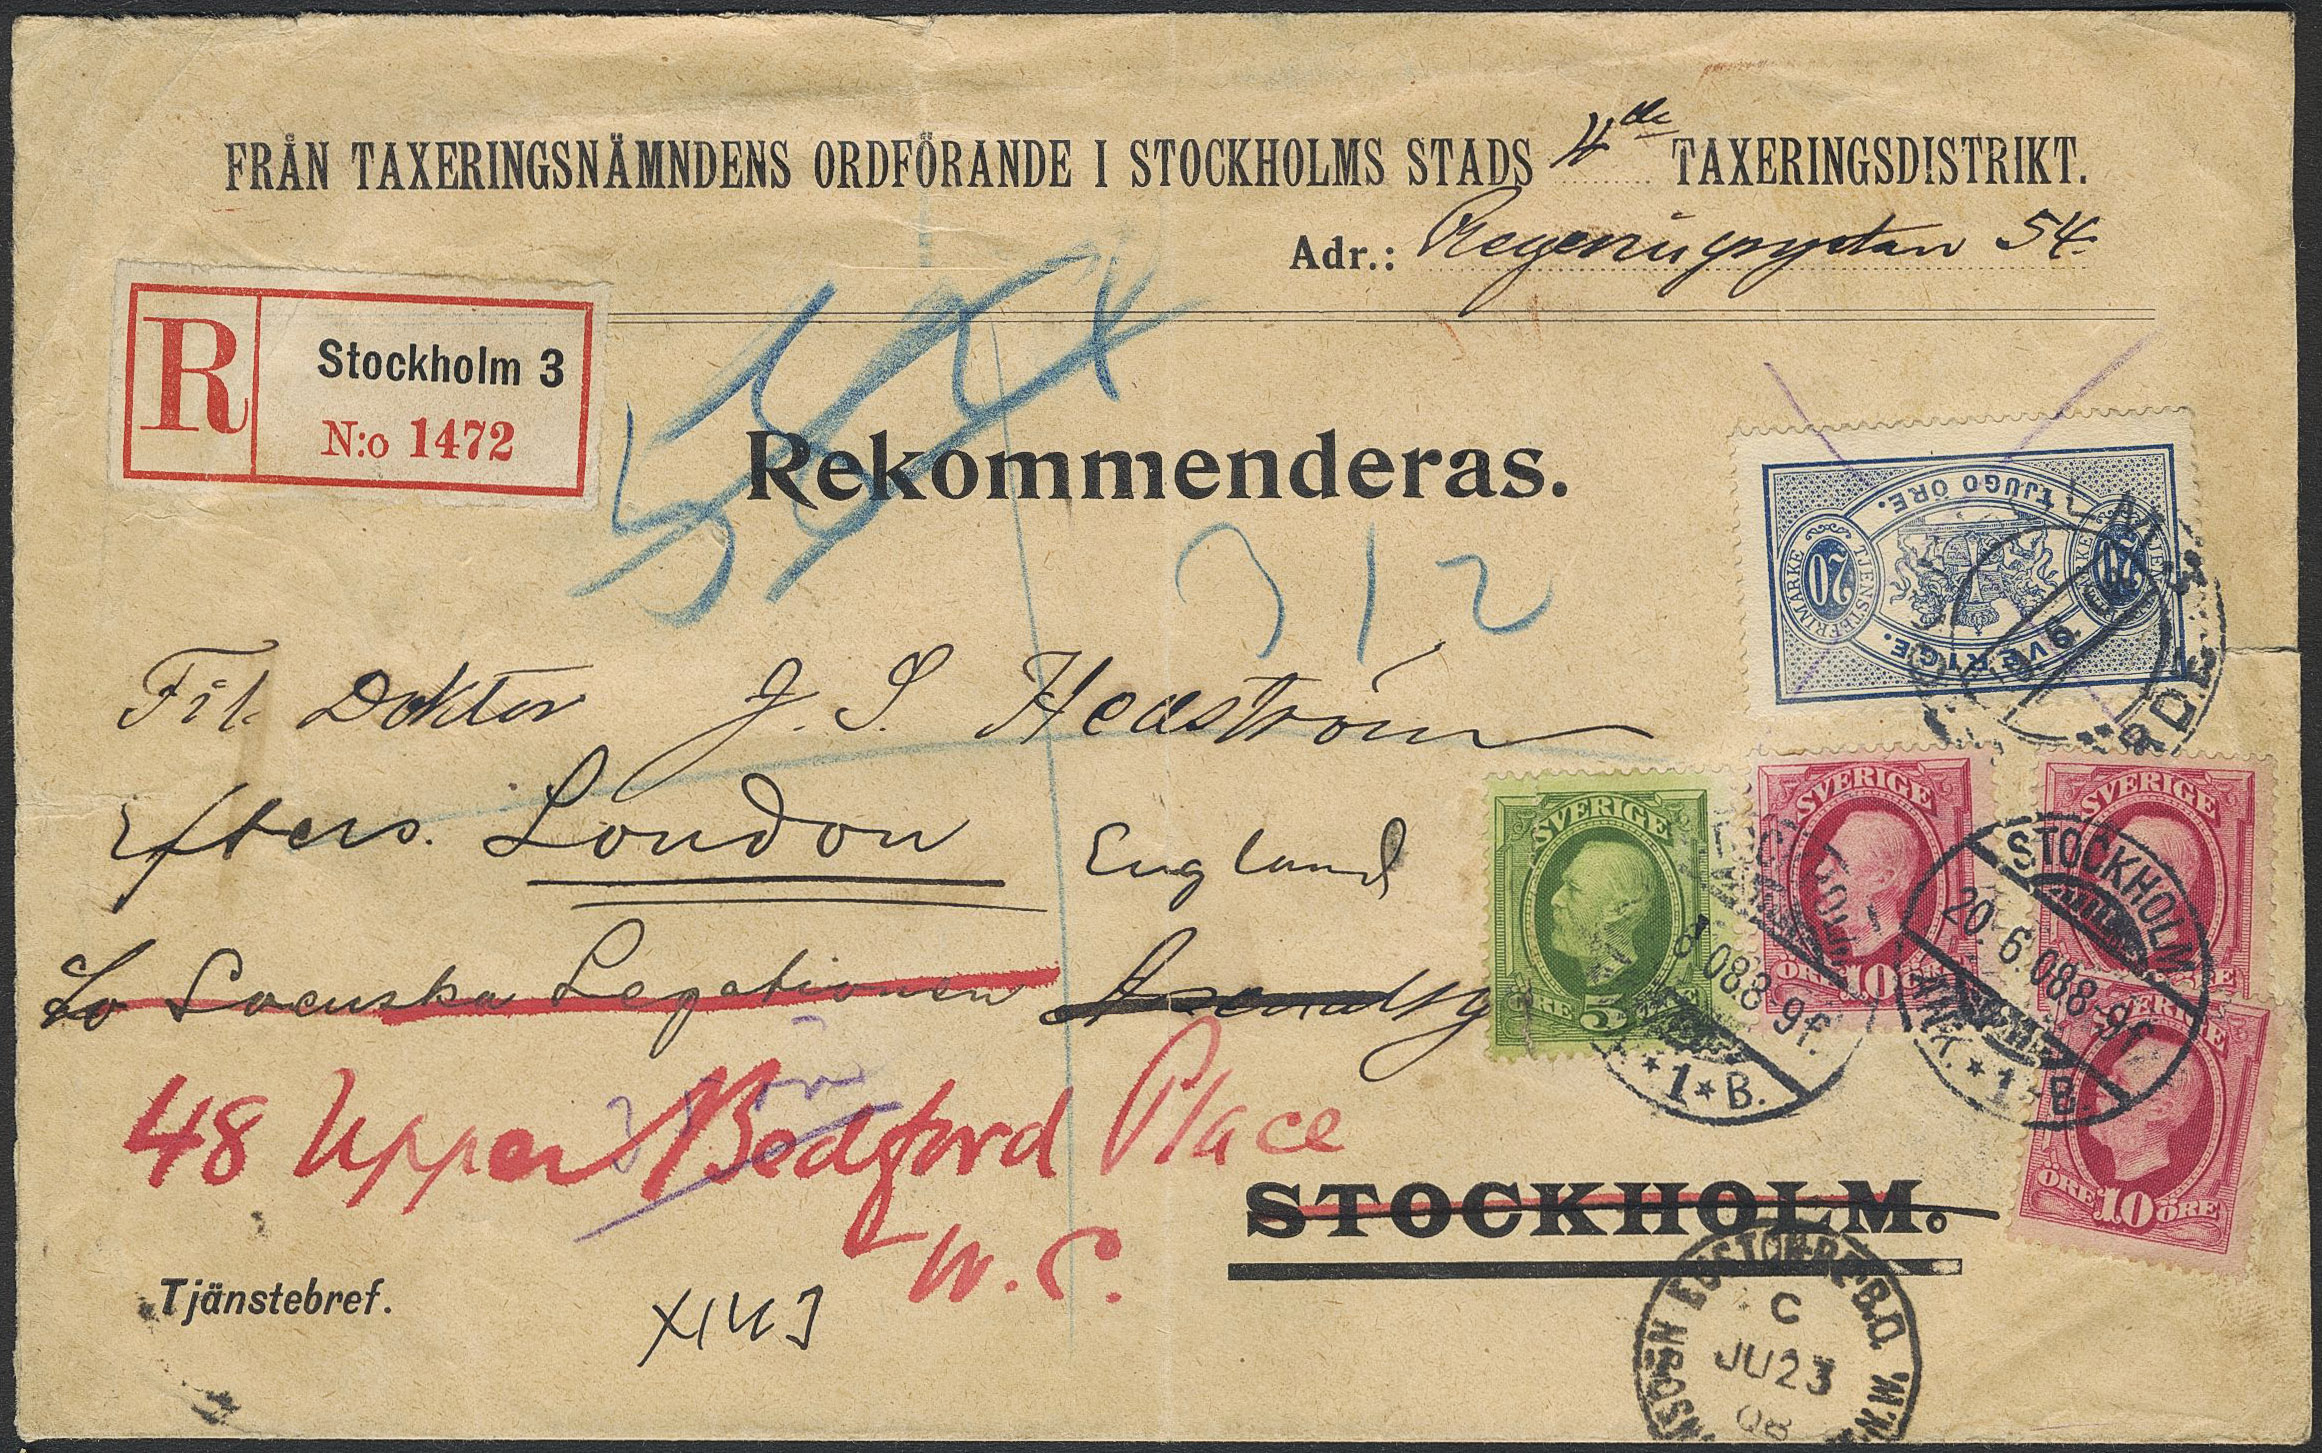 FRÅN TAXERINGSNÄMNDENS ORDFÖRANDE I STOCKHOLMS STADS 4de TAXERINGSDISTRIKT.
Adr.: 54
R Stockholm 3
N:o 1472
Rekommenderas.
312
TJUGO ÖRE.
20 TJENSTEFRIMARKE 20
SVERIGE.
Fil. Doktor J. S. Hedström
Efters. London England
Svenska Legationen
48 Upper Bedford Place
W.C.
SVERIGE
ÖRE 5
SVERIGE
ÖRE 10
SVERIGE
SVERIGE
ÖRE 10 ÖRE
6.08 8-9 F.
*1*B.
STOCKHOLM
20.6.08 8-9 F.
ANK.*1*B.
STOCKHOLM.
Tjänstebref.
C
JU 23
08